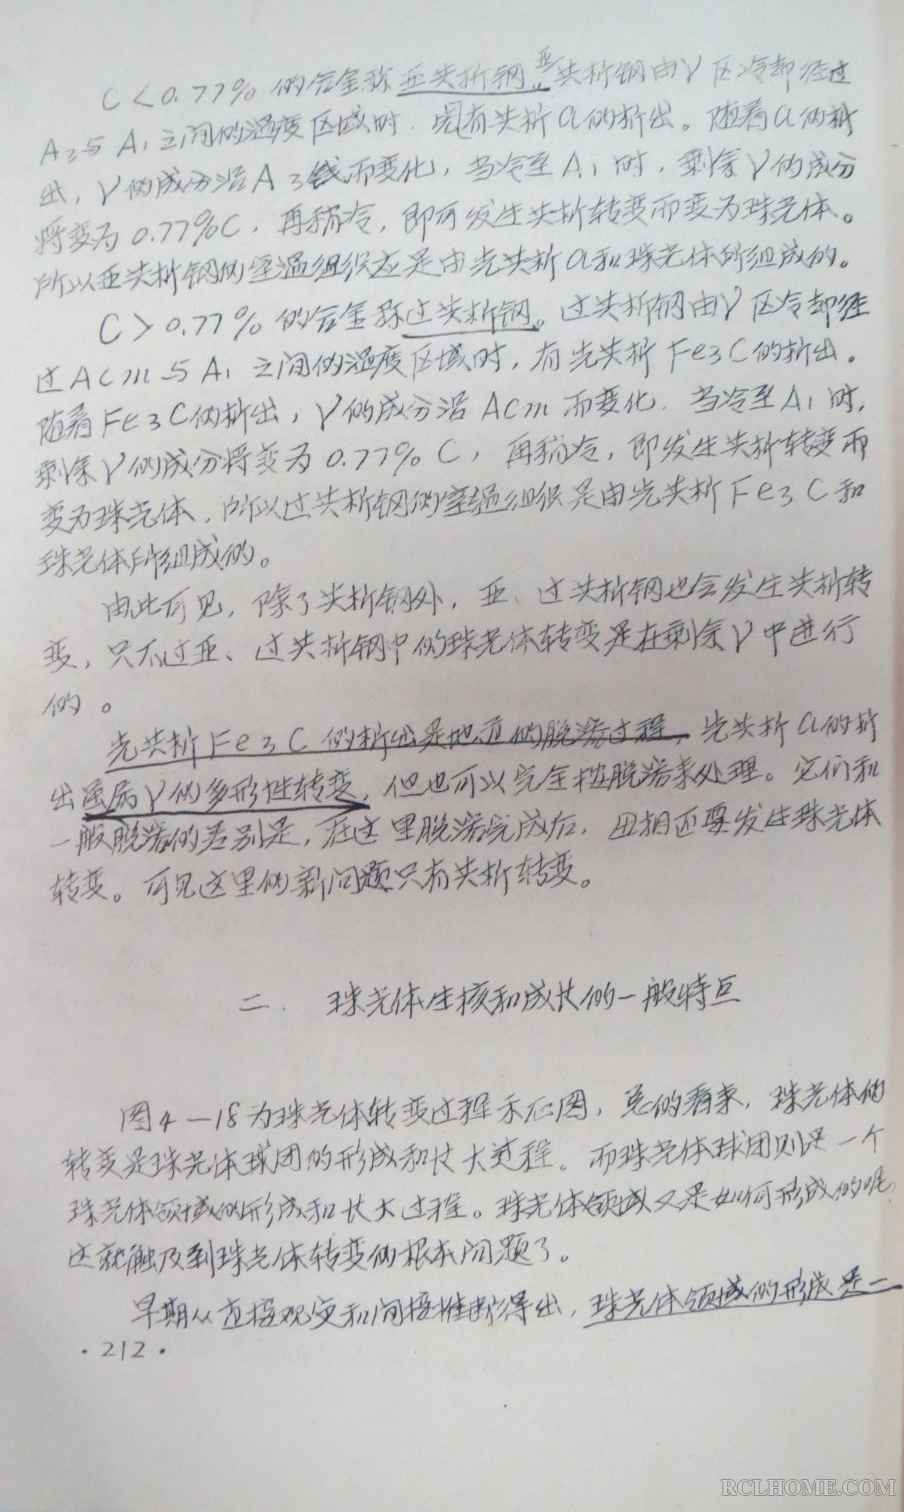 C<0.77%的合金称亚共析钢。亚共析钢由γ区冷却经过
A3与A1之间的温度区域时.现有先共析α的析出。随着α的析
出,γ的成分沿A3线而变化,当冷至A1时,剩余γ的成分
将变为0.77%C,再稍冷,即可发生共析转变而变为珠光体。
所以亚共析钢的室温组织应是由先共析α和珠光体所组成的。
C>0.77%的合金称过共析钢。过共析钢由γ区冷却经
过Acm与A1之间的温度区域时,有先共析Fe3C的析出。
随着Fe3C的析出,γ的成分沿Acm而变化.当冷至A1时,
剩余γ的成分将变为0.77%C,再稍冷,即发生共析转变而
变为珠光体.所以过共析钢的室温组织是由先共析Fe3C和
珠光体所组成的。
由此可见,除了共析钢外,亚、过共析钢也会发生共析转
变,只不过亚、过共析钢中的珠光体转变是在剩余γ中进行
的。
先共析Fe3C的析出是地道的脱溶过程,先共析α的析
出虽属γ的多形性转变,但也可以完全按脱溶来处理。它们和
一般脱溶的差别是,在这里脱溶完成后,母相还要发生珠光体
转变。可见这里的新问题只有共析转变。
二.珠光体生核和成长的一般特点
图4-18为珠光体转变过程示意图,总的看来,珠光体的
转变是珠光体球团的形成和长大过程。而珠光体球团则是一个
珠光体领域的形成和长大过程。珠光体领域又是如何形成的呢?
这就触及到珠光体转变的根本问题了。
早期从直接观察和间接推断得出,珠光体领域的形成是一
·212·
RCLHOME.COM